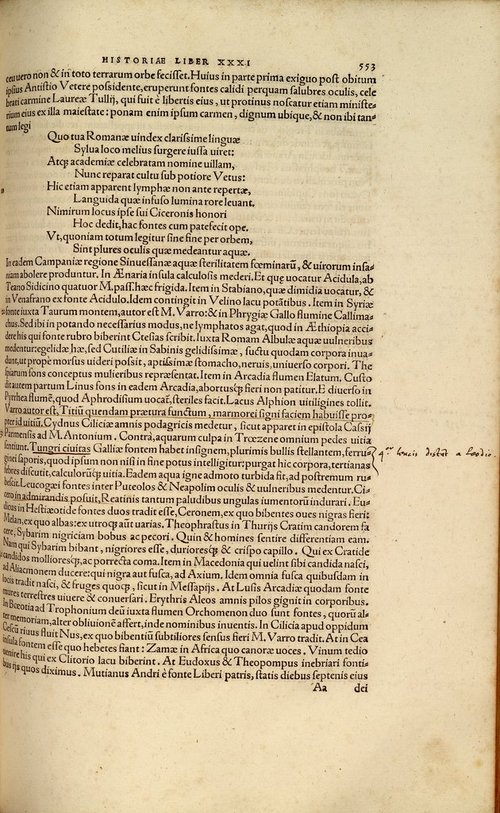 HISTORIAE LIBER XXXI 553
ceu uero non & in toto terrarum orbe fecisset. Huius in parte prima exiguo post obitum
ipsius Antistio Vetere possidente, eruperunt fontes calidi perquam salubres oculis, cele
brati carmine Laureæ Tullij, qui fuit è libertis eius, ut protinus noscatur etiam ministe⸗
rium eius ex illa maiestate: ponam enim ipsum carmen, dignum ubique, & non ibi tan⸗
tum legi
Quo tua Romanæ uindex clarissime linguæ
Sylua loco melius surgere iussa uiret:
Atq; academiæ celebratam nomine uillam,
Nunc reparat cultu sub potiore Vetus:
Hic etiam apparent lymphæ non ante repertæ,
Languida quæ infuso lumina rore leuant.
Nimirum locus ipse sui Ciceronis honori
Hoc dedit, hac fontes cum patefecit ope.
Vt, quoniam totum legitur sine fine per orbem,
Sint plures oculis quæ medeantur aquæ.
In eadem Campaniæ regione Sinuessanæ aquæ sterilitatem fœminarũ, & uirorum insa⸗
niam abolere produntur. In Ænaria insula calculosis mederi. Et quę uocatur Acidula, ab
Teano Sidicino quatuor M. pass. hæc frigida. Item in Stabiano, quæ dimidia uocatur, &
in Venafrano ex fonte Acidulo. Idem contingit in Velino lacu potãtibus. Item in Syriæ
fonte iuxta Taurum montem, autor est M. Varro: & in Phrygiæ Gallo flumine Callima
chus. Sed ibi in potando necessarius modus, ne lymphatos agat, quod in Æthiopia acci
dere his qui fonte rubro biberint Ctesias scribit. Iuxta Romam Albulæ aquæ uulneribus
medentur: egelidæ hæ, sed Cutiliæ in Sabinis gelidissimæ, suctu quodam corpora inua⸗
dunt, ut propè morsus uideri possit, aptissimæ stomacho, neruis, uniuerso corpori. The
spiarum fons conceptus mulieribus repræsentat. Item in Arcadia flumen Elatum. Custo
dit autem partum Linus fons in eadem Arcadia, abortusq́; fieri non patitur. E diuerso in
Pyrrhea flumẽ, quod Aphrodisium uocat̃, steriles facit. Lacus Alphion uitiligines tollit.
Varro autor est, Titiũ quendam prætura functum, marmorei signi faciem habuisse pro⸗
pter id uitiũ. Cydnus Ciliciæ amnis podagricis medetur, sicut apparet in epistola Cassij
Parmensis ad M. Antonium. Contrà, aquarum culpa in Trœzene omnium pedes uitia
sentiunt. Tungri ciuitas Galliæ fontem habet insignem, plurimis bullis stellantem, ferru⸗
ginei saporis, quod ipsum non nisi in fine potus intelligitur: purgat hic corpora, tertianas
febres discutit, calculorũq; uitia. Eadem aqua igne admoto turbida fit, ad postremum ru⸗
bescit. Leucogæi fontes inter Puteolos & Neapolim oculis & uulneribus medentur. Ci⸗
cero in admirandis posuit, Reatinis tantum paludibus ungulas iumentorũ indurari. Eu⸗
dicus in Hestiæotide fontes duos tradit esse, Ceronem, ex quo bibentes oues nigras fieri:
Melan, ex quo albas: ex utroq; aũt uarias. Theophrastus in Thurijs Cratim candorem fa
cere, Sybarim nigriciam bobus ac pecori. Quin & homines sentire differentiam eam.
Nam qui Sybarim bibant, nigriores esse, durioresq́; & crispo capillo. Qui ex Cratide
candidos molliioresq́;, ac porrecta coma. Item in Macedonia qui uelint sibi candida nasci,
ad Aliacmonem ducere: qui nigra aut fusca, ad Axium. Idem omnia fusca quibusdam in
locis tradit nasci, & fruges quoq;, sicut in Messapijs. At Lusis Arcadiæ quodam fonte
mures terrestres uiuere & conuersari. Erythris Aleos amnis pilos gignit in corporibus.
In Bœotia ad Trophonium deũ iuxta flumen Orchomenon duo sunt fontes, quorũ al⸗
ter memoriam, alter obliuionẽ affert, inde nominibus inuentis. In Cilicia apud oppidum
Cescũ riuus fluit Nus, ex quo bibentiũ subtiliores sensus fieri M. Varro tradit. At in Cea
insula fontem esse quo hebetes fiant: Zamæ in Africa quo canoræ uoces. Vinum tedio
uenire his qui ex Clitorio lacu biberint. At Eudoxus & Theopompus inebriari fonti⸗
bus ijs quos diximus. Mutianus Andri è fonte Liberi patris, statis diebus septenis eius
Aa dei